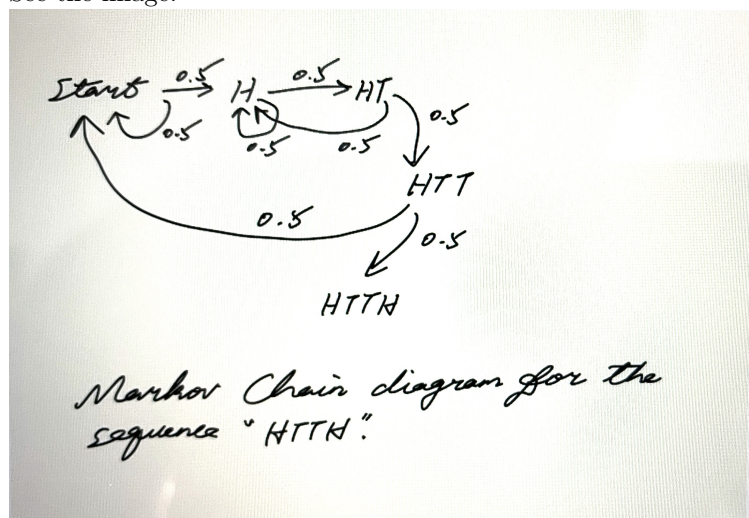 See the image.
Start 0.5 H 0.5 HT
0.5 0.5 0.5 0.5
HTT
0.5 0.5
HTTH
Markov Chain diagram for the
sequence "HTTH".